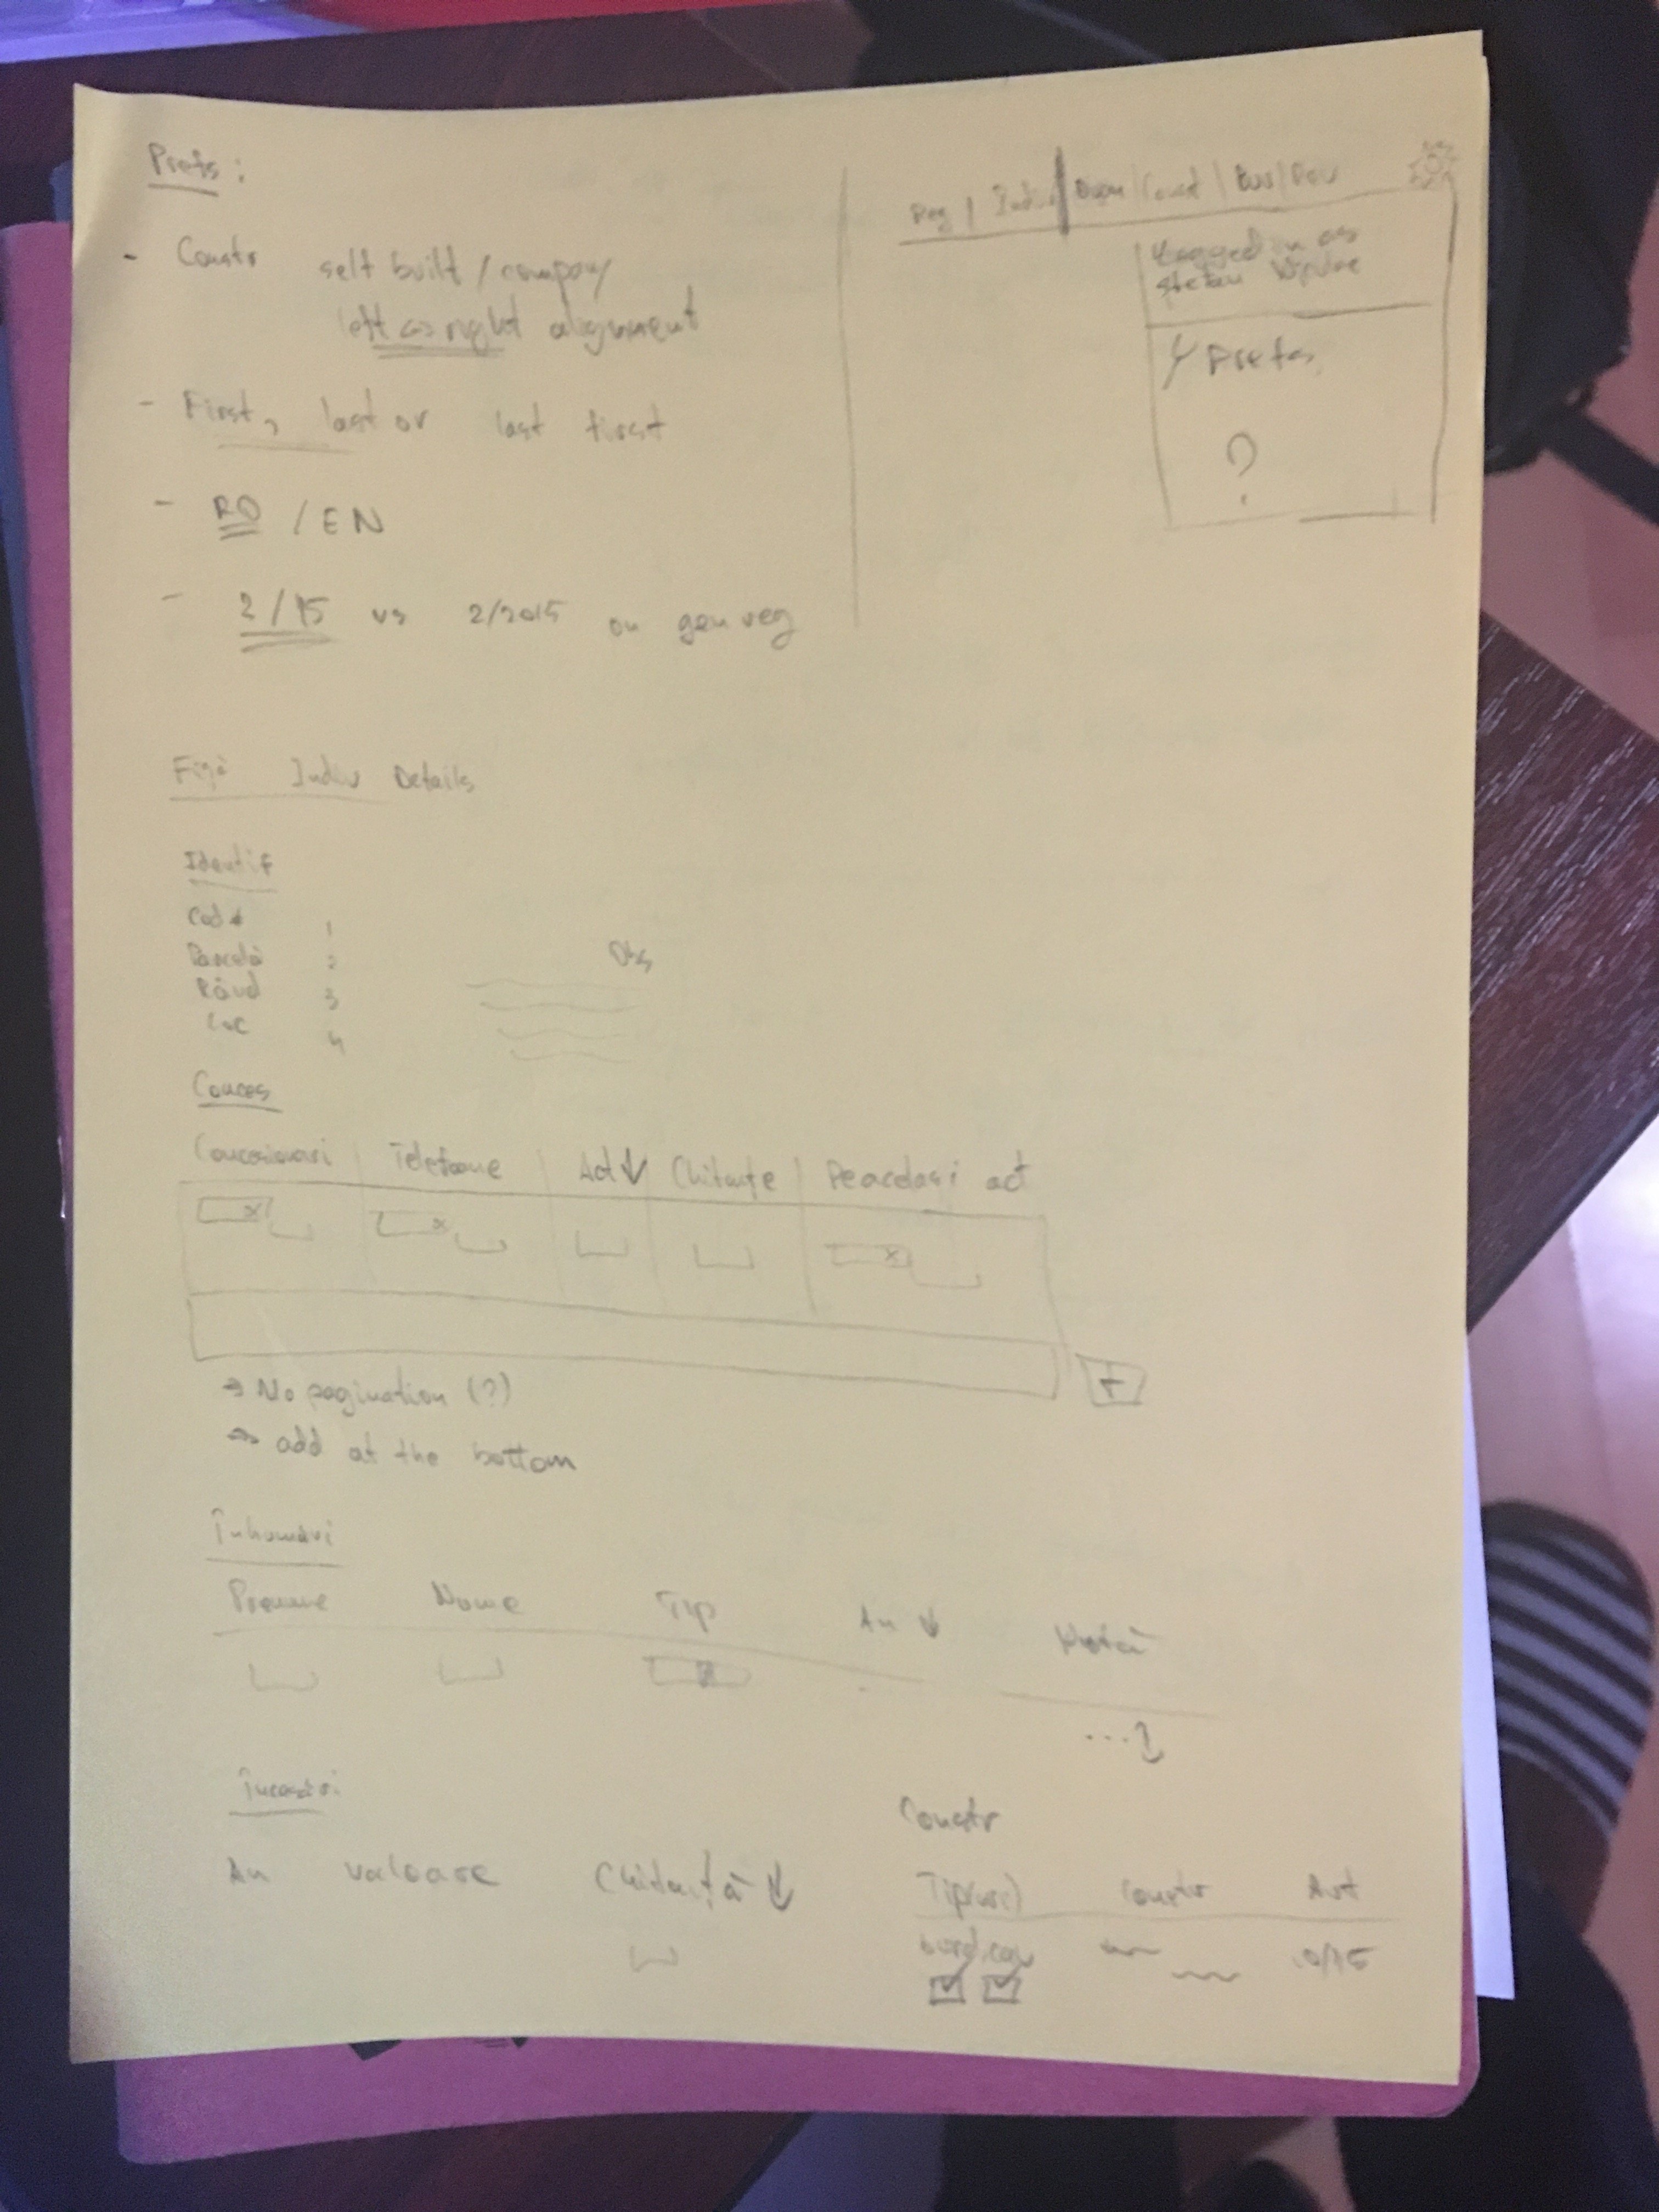 Prefs:
- Constr self built / company
left or right alignment
- First, last or last first
- RO / EN
- 2/15 vs 2/2015 on gen reg
Reg | Indiv | | Const |
Logged in as
Stefan
Prefs
?
Fișă Indiv Details
Identif
Cod 1
Parcelă 2
Rând 3
Loc 4
Obs
Conces
Concesionari | Telefoane | Act ↓ | Chitanțe | act
x x x
+
→ No pagination (?)
→ add at the bottom
Înhumări
Prenume Nume Tip An ↓ Notă
... ↓
Încasări
An Valoare Chitanță ↓
Constr
Tip(uri) Constr Aut
bordură